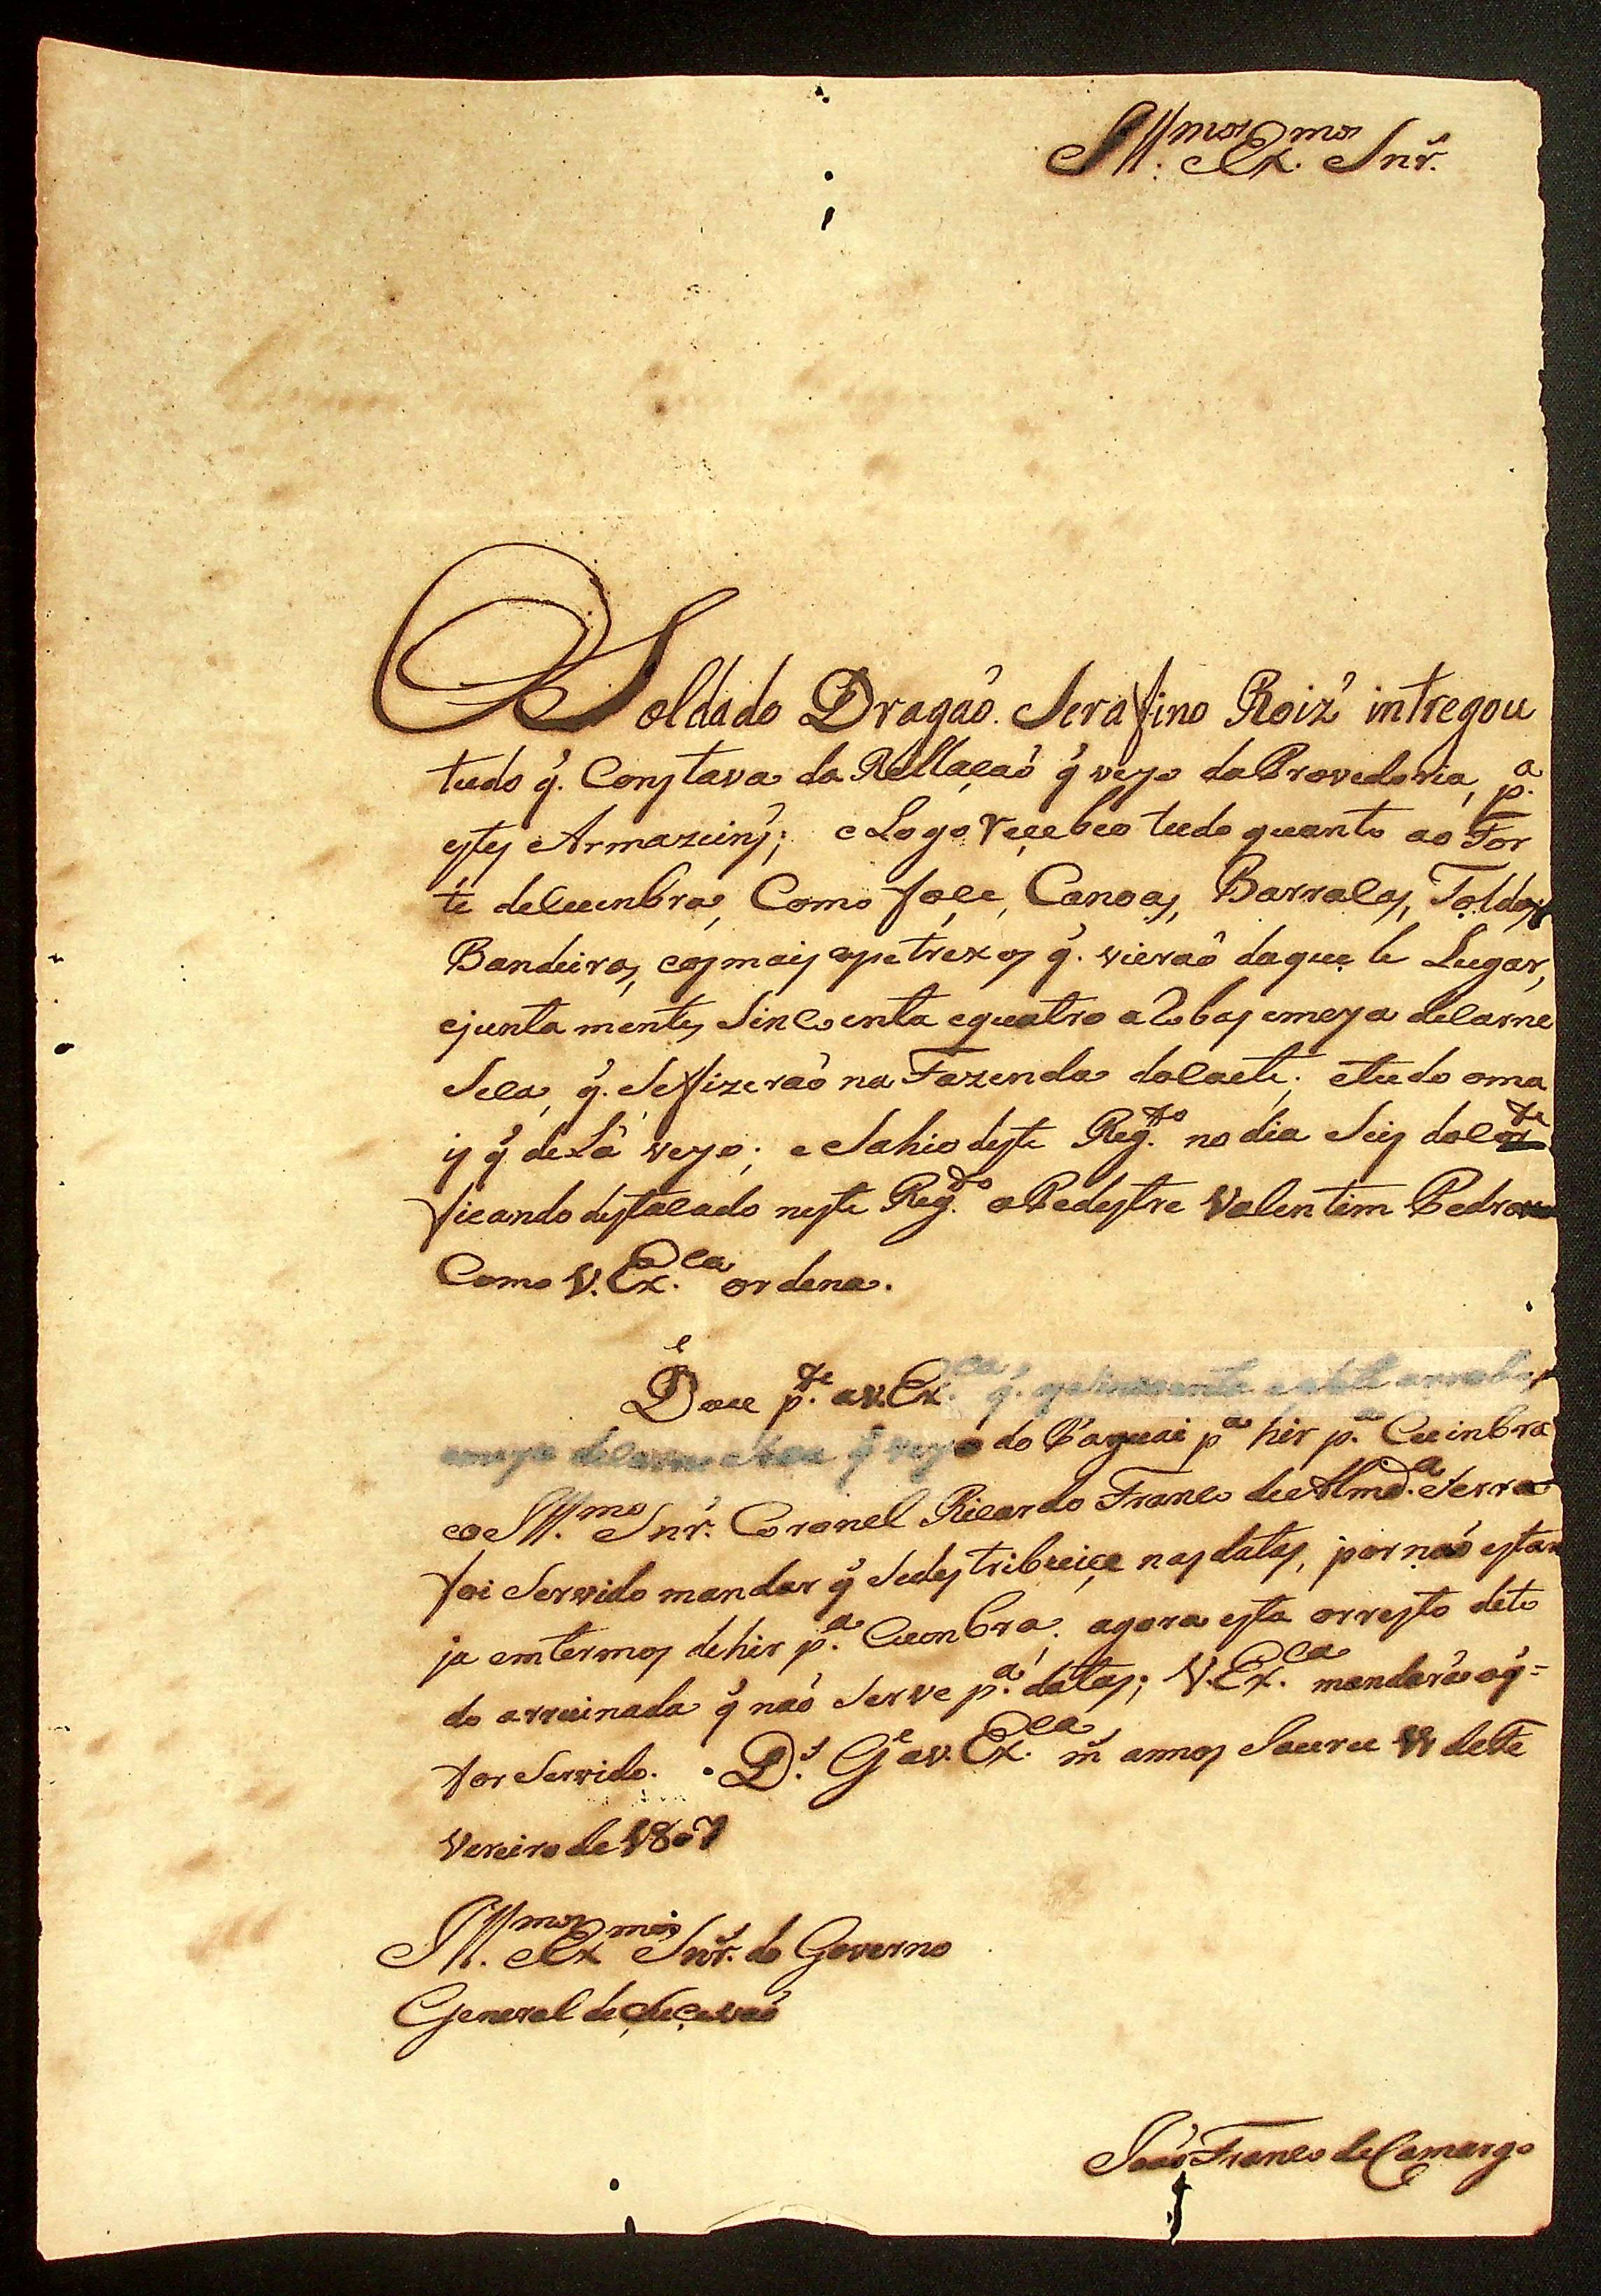 Ill.mos Ex.mos Snr.
O Soldado Dragaõ. Serafino Roiz intregou
tudo q̃. Constava da Rellaçaõ q̃ veyo da Provedoria, p.a
estes Armazeins; e Logo reçebeo tudo quanto ao For
te de Cuinbra, Como foçe, Canoas, Barracas, Toldos
Bandeiras, eosmais apetrexos q̃. vieraõ daque le Lugar,
ejunta mentes Sincoenta equatro arobas emeya decarne
Seca, q̃. Sefizeraõ na Fazenda do Caete; etudo oma
is q̃ deLá veyo; e Sahio deste Reg.to no dia Seis do Cor.te
ficando destacado neste Reg.to o Pedestre Valentim Pedro
Como V. Ex.ca ordena.
Dou p.te a V. Ex.ca q̃. as sincoenta e sete arrobas
emeya de carne seca q̃ veyo do Paguai p.a hir p.a Cuinbra
eo Ill.mo Snr. Coronel Ricardo Franco de Almd.a Serra
foi Servido mandar q̃ Sedestribuiçe nas datas, por naõ estar
ja emtermos dehir p.a Cuonbra; agora esta orresto deto
do arruinada q̃ naõ Serve p.a datas; V. Ex.ca mandará oq̃=
for Servido. D.s G.e a V. Ex.ca m.s annos Jauru 11 deFe
vereiro de 1807
Ill.mos Ex.mos Snr. do Governo
General de Suçeçaõ
Joaõ Franco de Camargo